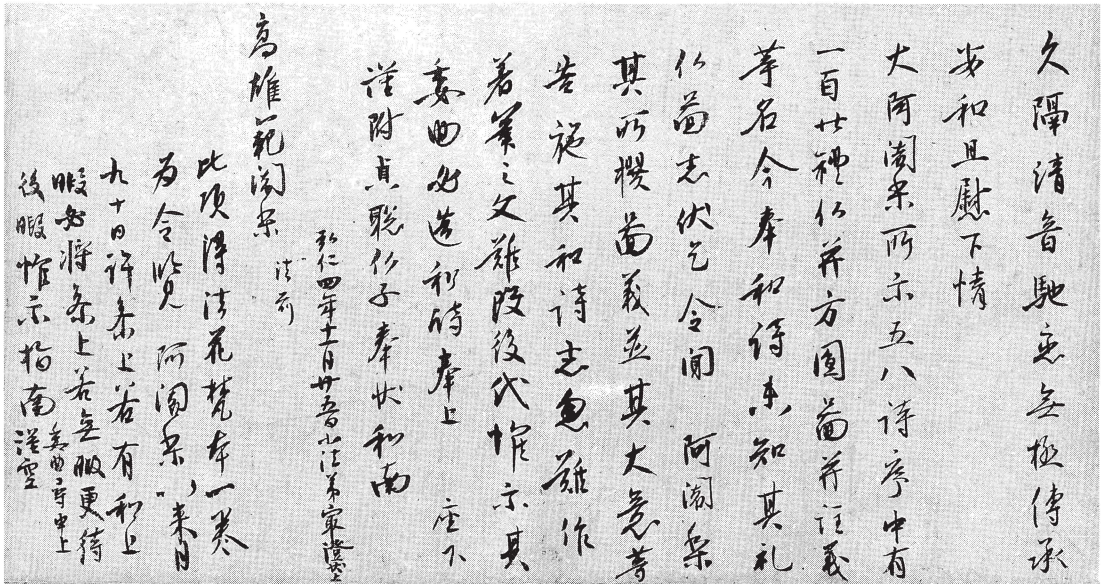 久隔清音馳恋無極傳承
安和且慰下情
大阿闍梨所示五八詩序中有
一百廿禮仏并方圓圖并註義
等名今奉和詩未知其礼
仏圖者伏乞令聞 阿闍梨
其所撰圖義並其大意等
告施其和詩者忽難作
著筆之文難改後代惟示其
委曲必造和詩奉上 座下
謹附貞聡仏子奉状和南
弘仁四年十一月廿五日小法弟最澄状上
高雄範闍梨 法前
此頃得法花梵本一巻
為令覧 阿闍梨以来月
九十日許参上若有和上
暇必将参上若無暇更待
後暇惟示指南 委曲尋申上
謹空